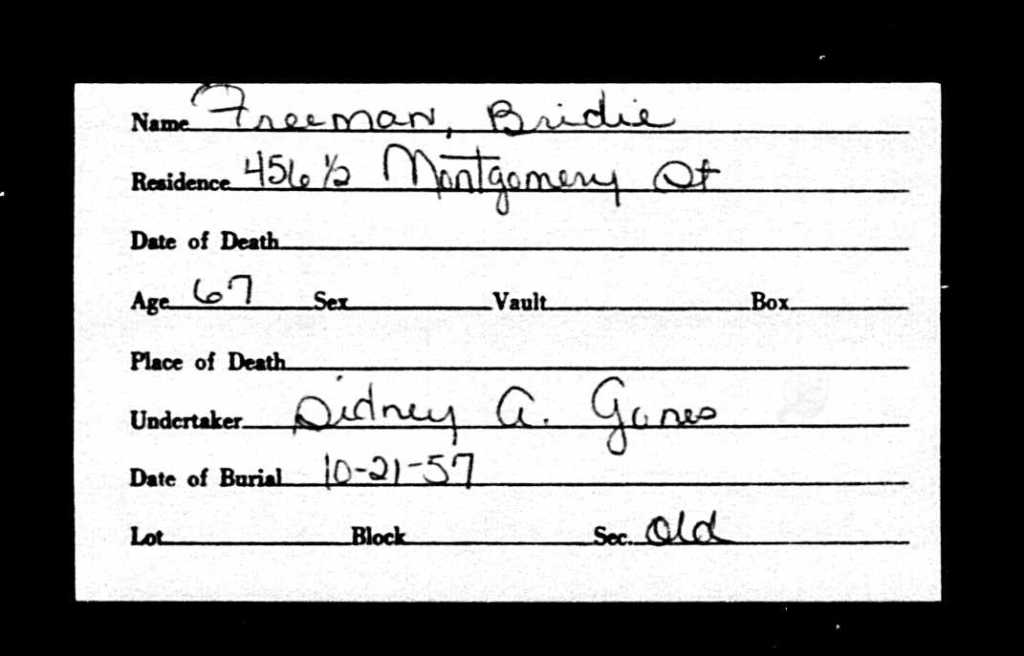 Name Freeman, Bridie
Residence 456 1/2 Montgomery St
Date of Death
Age 67 Sex Vault Box
Place of Death
Undertaker Sidney A. Jones
Date of Burial 10-21-57
Lot Block Sec. Old